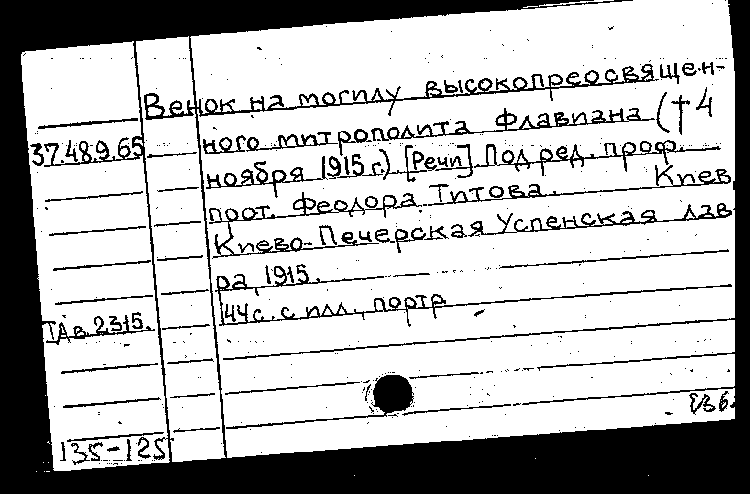 Венок на могилу высокопреосвящен-
37.48.9.65. ного митрополита Флавиана († 4
ноября 1915 г.). [Речи]. Под ред. проф.
прот. Феодора Титова. Киев
Киево-Печерская Успенская лав
ра, 1915.
144 с. с илл., портр
IАв.2315.
135-125